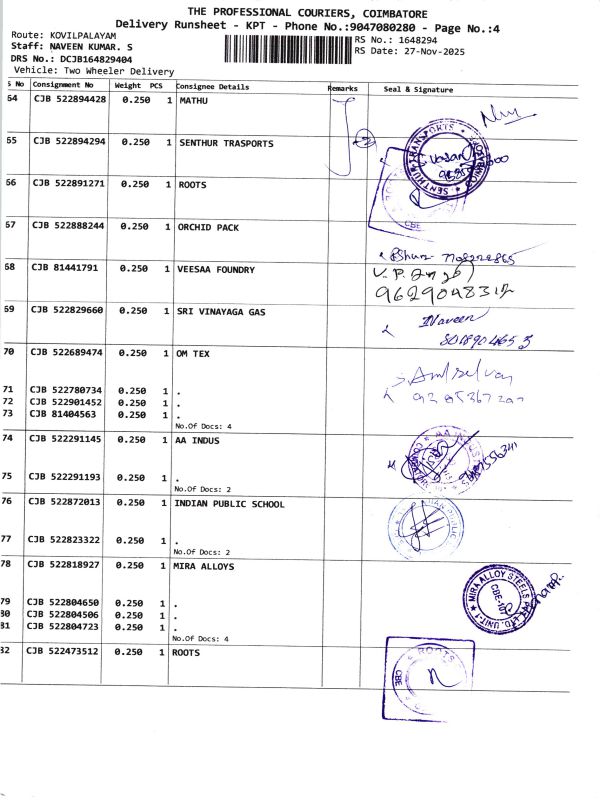 THE PROFESSIONAL COURIERS, COIMBATORE
Delivery Runsheet - KPT - Phone No.:9047080280 - Page No.:4
Route: KOVILPALAYAM
RS No.: 1648294
Staff: NAVEEN KUMAR. S
RS Date: 27-Nov-2025
DRS No.: DCJB164829404
Vehicle: Two Wheeler Delivery
S No Consignment No Weight PCS Consignee Details Remarks Seal & Signature
64 CJB 522894428 0.250 1 MATHU
65 CJB 522894294 0.250 1 SENTHUR TRASPORTS
SENTHUR TRANSPORTS
66 CJB 522891271 0.250 1 ROOTS
CBE
67 CJB 522888244 0.250 1 ORCHID PACK
68 CJB 81441791 0.250 1 VEESAA FOUNDRY
9629048312
69 CJB 522829660 0.250 1 SRI VINAYAGA GAS
Naveen
70 CJB 522689474 0.250 1 OM TEX
71 CJB 522780734 0.250 1 .
72 CJB 522901452 0.250 1 .
73 CJB 81404563 0.250 1 .
No.Of Docs: 4
74 CJB 522291145 0.250 1 AA INDUS
75 CJB 522291193 0.250 1 .
No.Of Docs: 2
76 CJB 522872013 0.250 1 INDIAN PUBLIC SCHOOL
77 CJB 522823322 0.250 1 .
No.Of Docs: 2
78 CJB 522818927 0.250 1 MIRA ALLOYS
MIRA ALLOY STEELS PVT. LTD. UNIT-I
79 CJB 522804650 0.250 1 .
80 CJB 522804506 0.250 1 .
81 CJB 522804723 0.250 1 .
No.Of Docs: 4
82 CJB 522473512 0.250 1 ROOTS
ROOTS
CBE